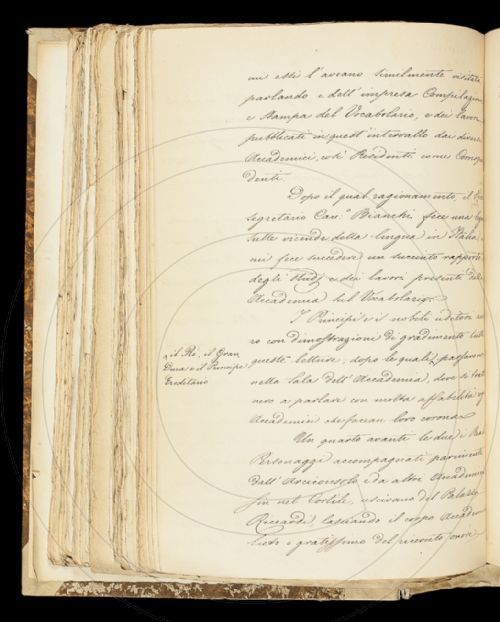 mi essi l'avcano similmente visitata
parlando e dell'impresa Compilazion
e Stampa del Vocabolario, e dei lavori
pubblicati in quest'intervallo dai diversi
Accademici, così Residenti come
denti.
Dopo il qual ragionamento, il
segretario Cav.e Bianchi fece una
sulle vicende della lingua in Italia
mi fece succedere un succinto rapporto
degli studj e dei lavori presenti dell'
Accademia sul Vocabolario.
I Principi e i nobili uditori
ro con dimostrazione di gradimento
queste letture; dopo le quali, passarono
nella Sala dell'Accademia, dove si
nero a parlare con molta affabilità
Accademici che facean loro corona.
Un quarto avanti le due, i
Personaggi accompagnati parimente
dall'Arciconsolo e da altri Accademici
fin nel Cortile, uscirono del Palazzo
Riccardi, lasciando il corpo
lieto e gratissimo del ricevuto onore.
il Re, il Gran
Duca e il Principe
Ereditario